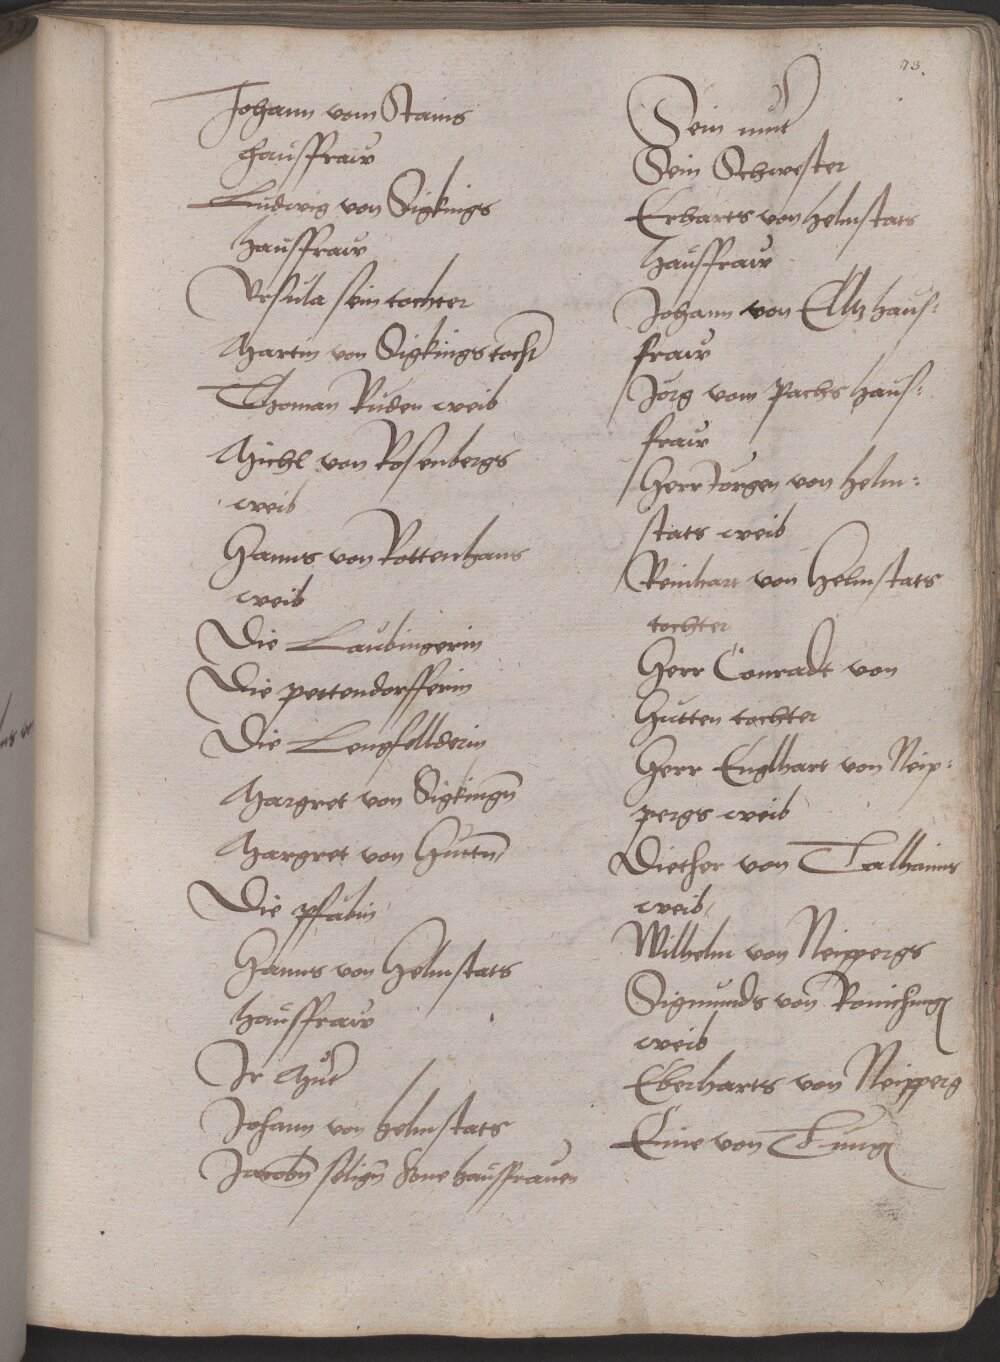 73.
Johann vom Stains
hausffraw
Ludwig von Sigkings
hausffraw
Vrsula sein tochter
Martin von Sigkings tocht
Thoman Ruden weib
Michl von Rosenbergs
weib
Hanns von Rottenhans
weib
Die Laubingerin
Die pettendorfferin
Die Lengfellderin
Margret von Sigkingn
Margret von Huttn
Die pfälin
Hanns von Helmstats
hausffraw
Ir Mut
Johann von helmstats
Jacobn seligen Sone hausffrauen
Sein mut
Sein Schwester
Erharts von helmstats
hausffraw
Johann von Elltz haus:
fraw
Jorg vom Pachs haus:
fraw
Herr Jorgen von helm:
stats weib
Reinhart von Helmstats
tochter
Herr Conradt von
Hutten tochter
Herr Englhart von Neip:
pergs weib
Diether von Talhaims
weib
Wilhelm von Neippergs
Sigmunds von
weib
Eberharts von Neipperg
Eine von Tung